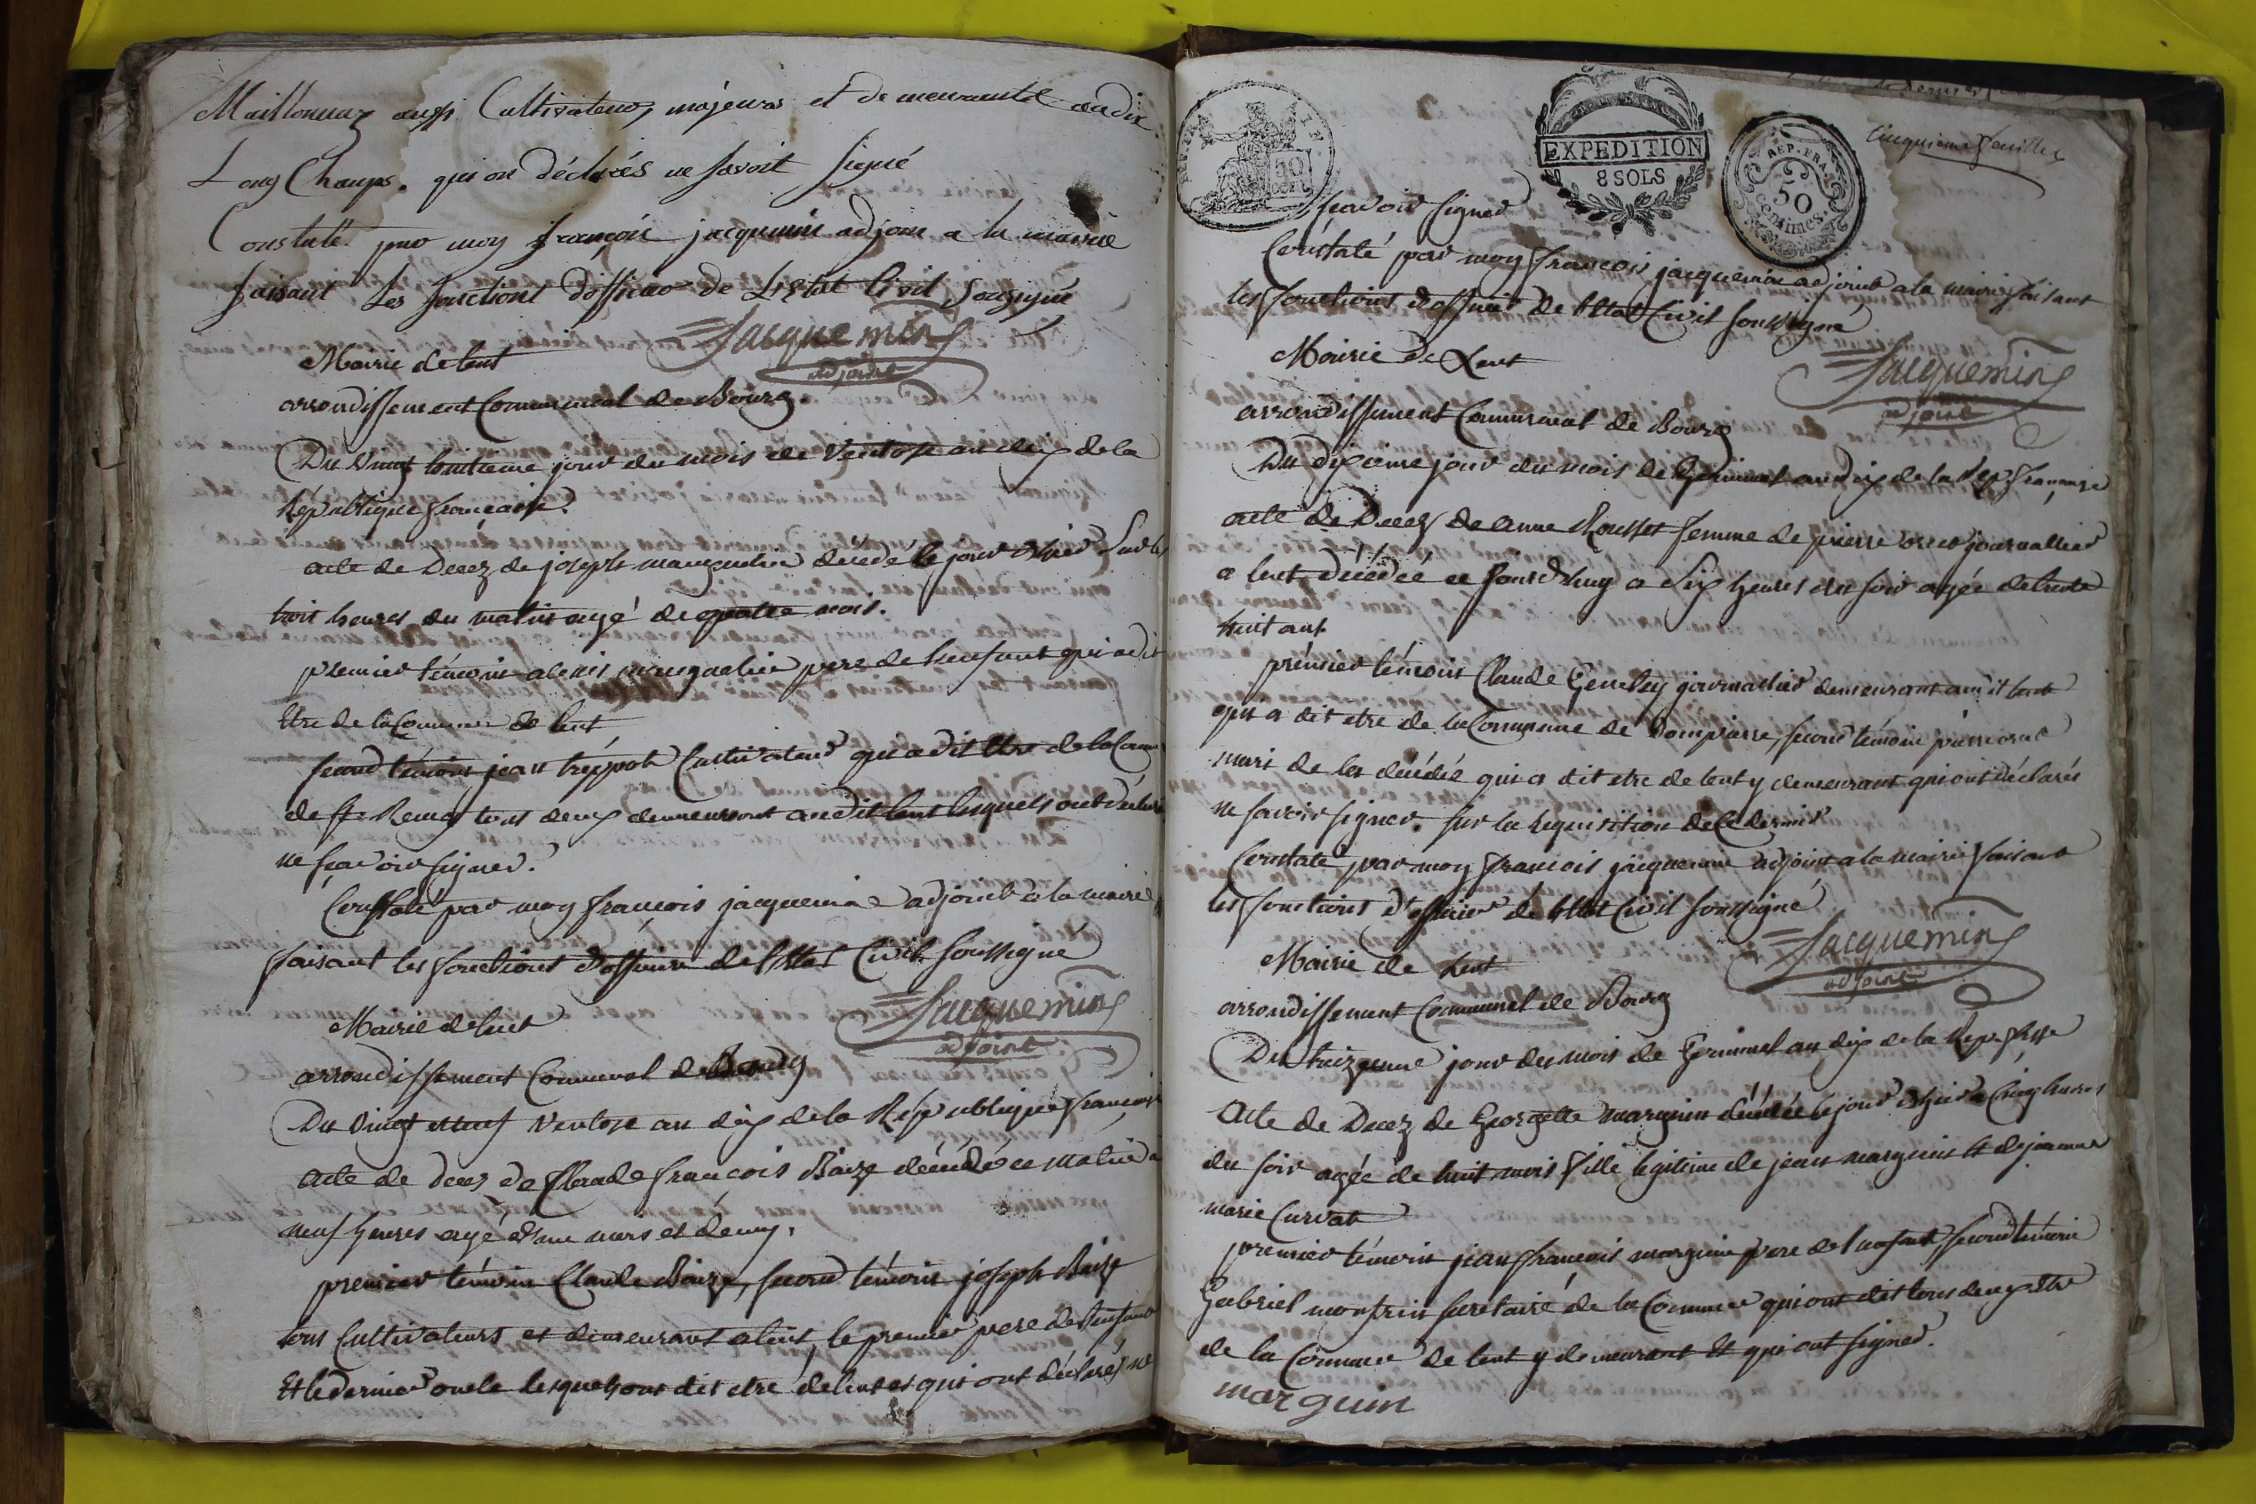 Maillonnaz aussi Cultivateur, majeurs et demeurantd audix
Long Champs. qui on déclarés ne savoit signé
Constaté par moy françois jacquemin adjoin a la mairie
faisant les fonctions d'officier de L'Etat Civil sousigné
Jacquemin
adjoint
Mairie de lent
arrondissement Communal de Bourg.
Du vingt huitieme jour du mois de Ventose an dix de la
République francaise.
acte de Decez de joseph decédé le jour d'hier sur les
trois heures du matin agé de quatre mois.
premier témoin alexis pere de l'enfant qui a dit
Etre de la Commune de lent
second témoin jean tréppoh Cultivateur qui a dit Etre de la Comm
de st. Remy tous deux demeurant audit lent lesquels ont déclaré
ne scavoir signer.
Constaté par moy francois jacquemin adjoint a la mairie
faisant les fonctions d'officier de l'Etat Civil soussigné
Jacquemin
adjoint
Mairie de lent
arrondissement Communal de Bourg
Du vingt et neuf Ventose an dix de la République francaise
acte de decez de Claude françois Baize décédé ce matin a
neuf heures agé d'un mois et demy.
premier témoin Claude Baize, second témoin joseph Baize
tous Cultivateurs et demeurant a lent, le premier pere de l'enfant
Et le dernier oncle lesquels ont dit etre de lent et qui ont déclaré ne
REP. FRA.
50
CENT.
EXPEDITION
8 SOLS
REP. FRA.
50
centimes.
Cinquieme feuillet
scavoir signer
Constaté par moy francois jacquemin adjoint a la mairie faisant
les fonctions d'officier de l'Etat Civil soussigné
Jacquemin
adjoint
Mairie de Lent
arrondissement Communal de Bourg
Du dixieme jour du mois de Germinal an dix de la Rep. francaise
acte de Decez de anne Rousset femme de pierre journallier
a lent décédée ce jourd'huy a six heures du soir agée de trente
huit ans
prémier témoin Claude Gerrebey journallier demeurant audit lent
qui a dit etre de la Commune de Dompierre, second témoin pierre
mari de la décédée qui a dit etre de lent y demeurant qui ont déclarés
ne savoir signer. sur la requisition de ce dernier
Constaté par moy francois jacquemin adjoint a la mairie faisant
les fonctions d'officier de l'Etat Civil soussigné
Jacquemin
adjoint
Mairie de Lent
arrondissement Communal de Bourg
Du treizieme jour du mois de Germinal an dix de la Rep. fsse
acte de Decez de Georgette marguin décédée le jour d'hier a Cinq heures
du soir agée de huit mois fille legitime de jean marguin et de jeanne
marie Curvat
premier témoin jean francois marguin pere de l'enfant second témoin
Gabriel monfrin secretaire de la Commune qui ont dit tous deux etre
de la Commune de lent y demeurant Et qui ont signer.
marguin